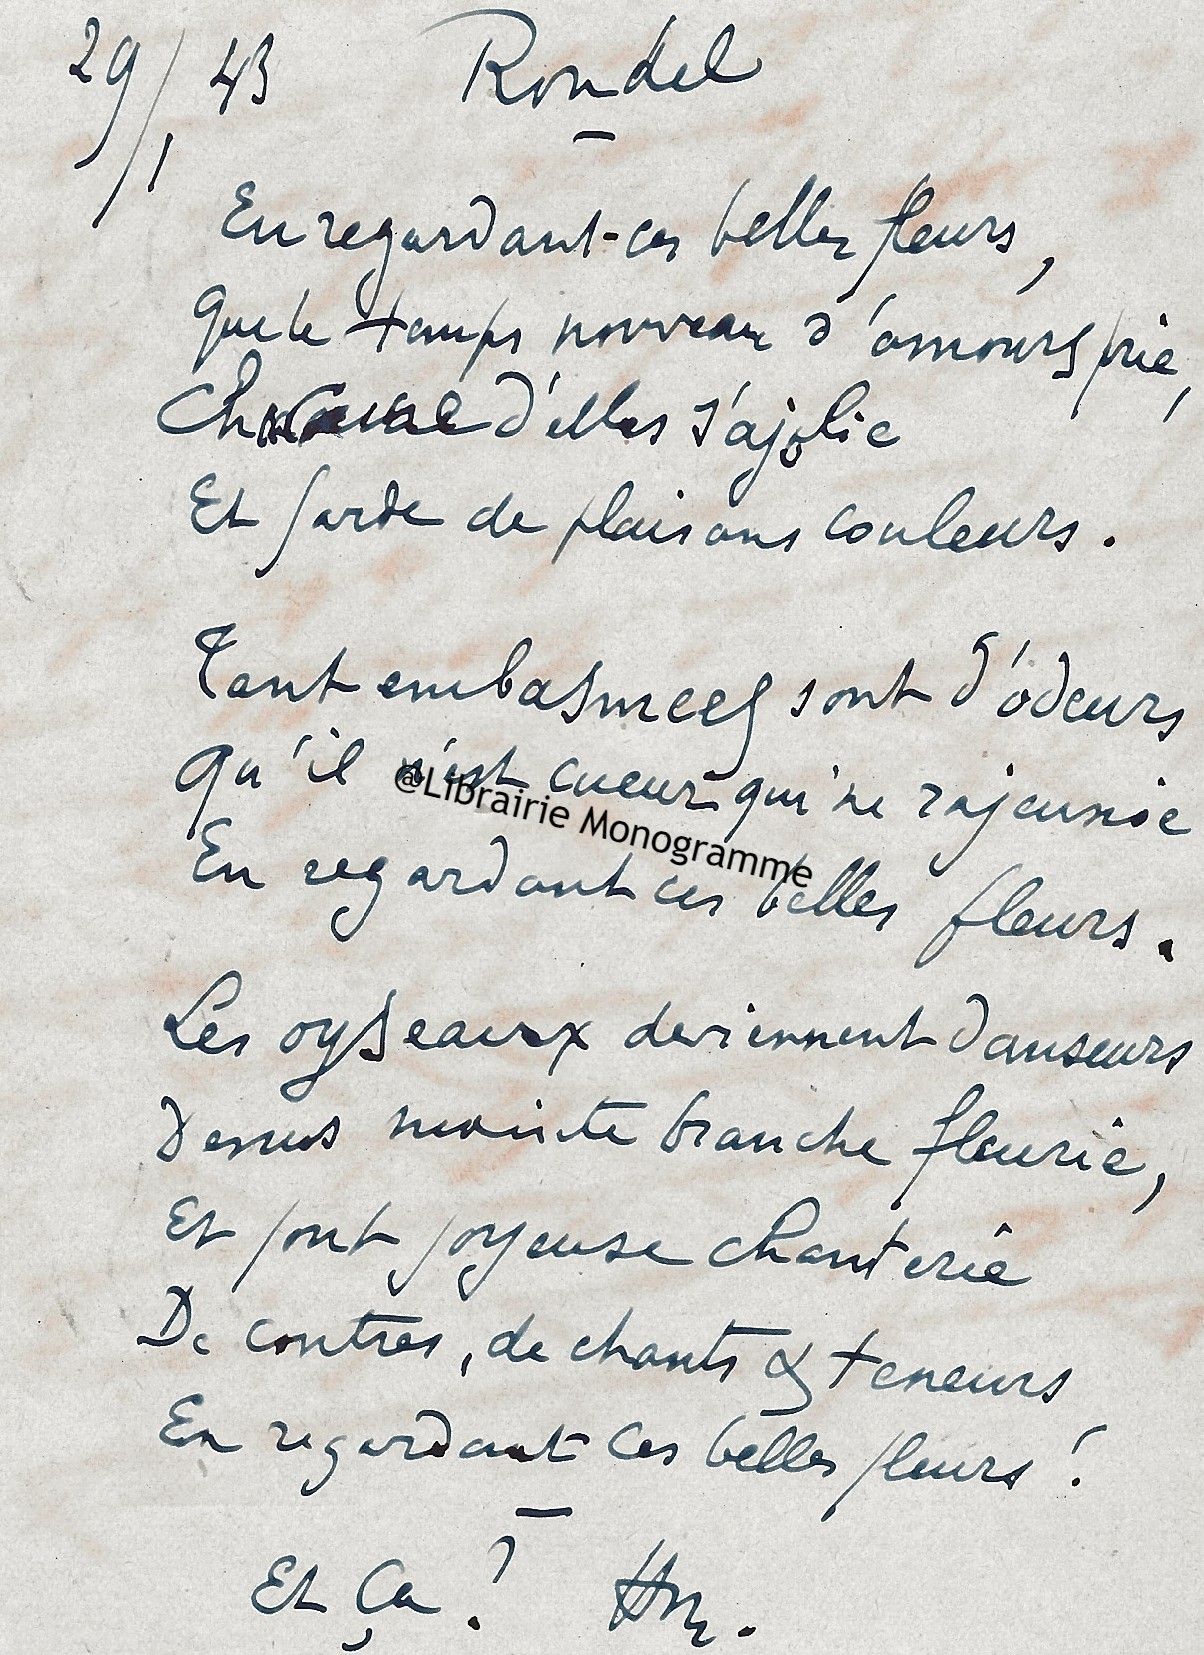 29/1 43 Rondel
En regardant ces belles fleurs,
Que le temps nouveau d'amours prie,
Chacune d'elles s'ajolie
Et farde de plaisans couleurs.
Tant embasmees sont d'odeurs
Qu'il n'est cueur qui ne rajeunie
@Librairie Monogramme
En regardant ces belles fleurs.
Les oyseaux deviennent danseurs
Dessus mainte branche fleurie,
Et font joyeuse chanterie
De contres, de chants & teneurs
En regardant ces belles fleurs !
Et ça ? HM.